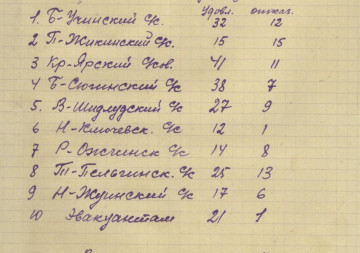 Удовл. отказ.
1. Б-Учинский с/к 32 12
2 П-Жикинский с/к. 15 15
3 Кр-Ярский с/сов. 41 11
4 Б-Сюгинский с/к 38 7
5. В-Шидлудский с/к 27 9
6 Н-Ключевск. с/к 12 1
7 Р-Ожгинск с/к 14 8
8 Т-Пельгинск. с/к 25 13
9 Н-Жуинский с/к 17 6
10 Эвакуантам 21 1